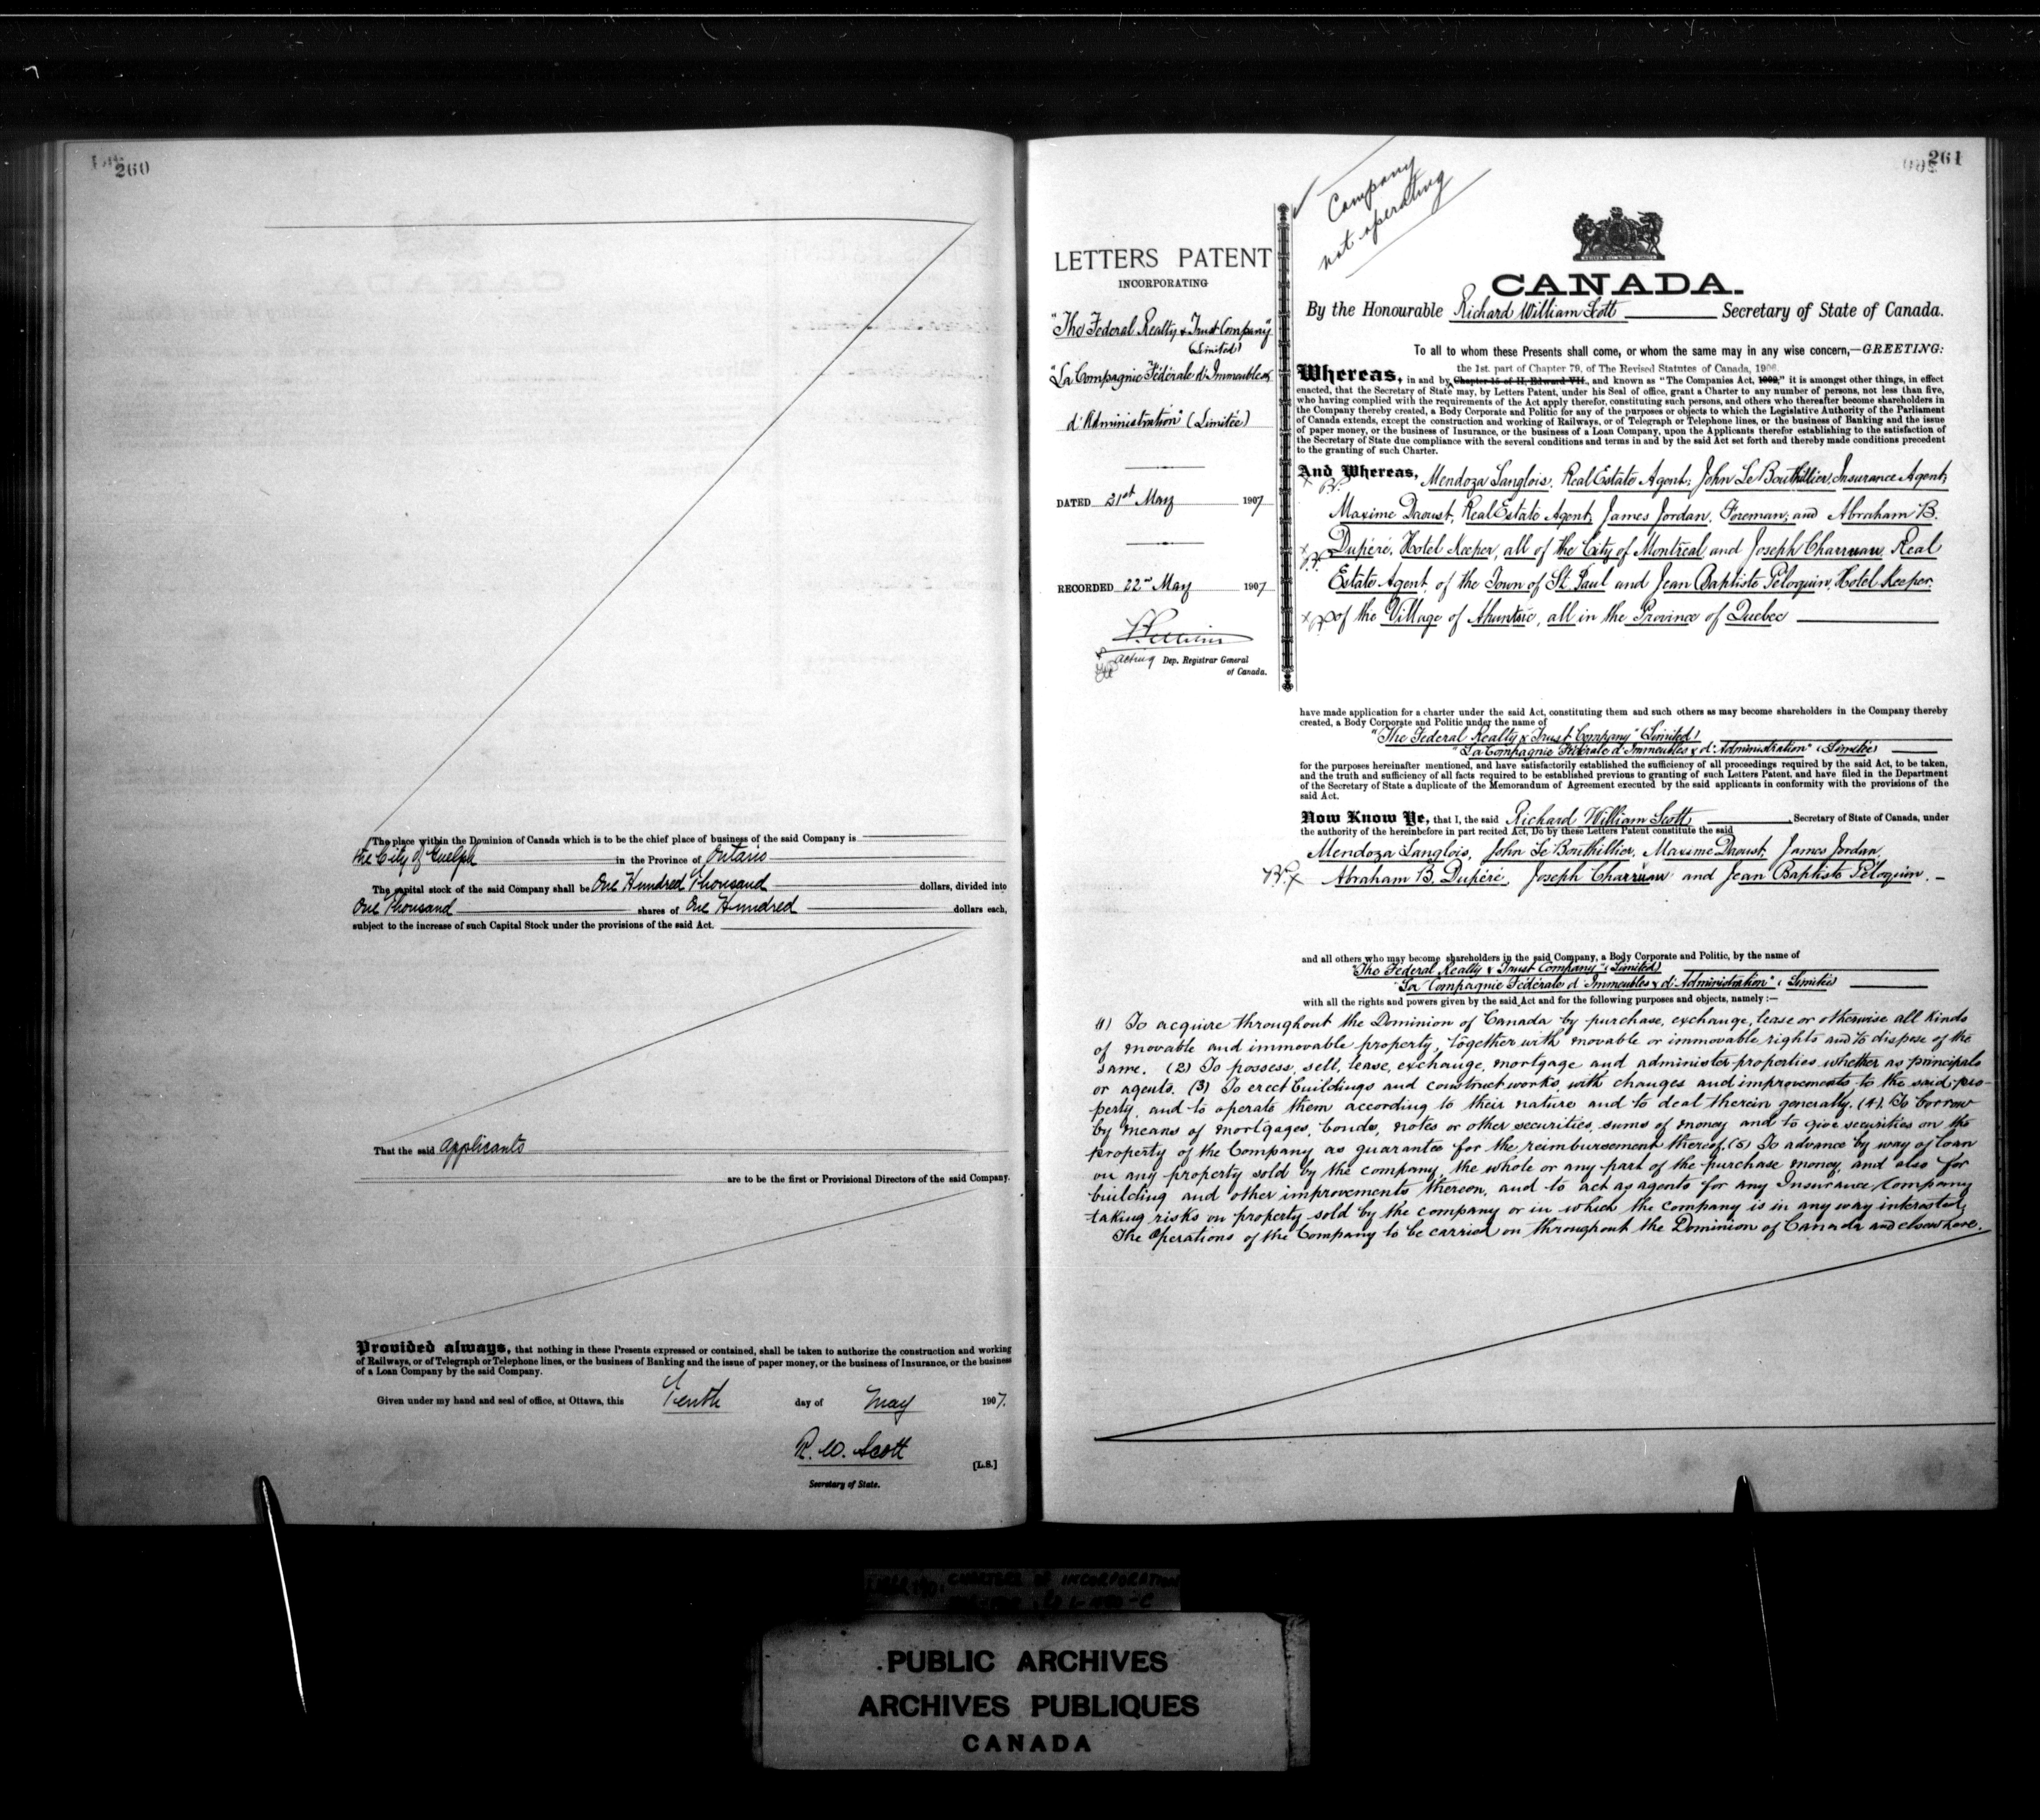 260
The place within the Dominion of Canada which is to be the chief place of business of the said Company is
the City of Guelph in the Province of Ontario
The capital stock of the said Company shall be One Hundred Thousand dollars, divided into
One Thousand shares of One Hundred dollars each,
subject to the increase of such Capital Stock under the provisions of the said Act.
That the said applicants
are to be the first or Provisional Directors of the said Company.
Provided always, that nothing in these Presents expressed or contained, shall be taken to authorize the construction and working
of Railways, or of Telegraph or Telephone lines, or the business of Banking and the issue of paper money, or the business of Insurance, or the business
of a Loan Company by the said Company.
Given under my hand and seal of office, at Ottawa, this Tenth day of May 1907.
R. W. Scott
[L.S.]
Secretary of State.
261
Company
not operating
LETTERS PATENT
INCORPORATING
"The Federal Realty & Trust Company"
(Limited)
"La Compagnie Fédérale d'Immeubles &
d'Administration" (Limitée)
DATED 21st May 1907
RECORDED 22nd May 1907
acting Dep. Registrar General
of Canada.
CANADA.
By the Honourable Richard William Scott Secretary of State of Canada.
To all to whom these Presents shall come, or whom the same may in any wise concern,—GREETING:
the 1st. part of Chapter 79, of The Revised Statutes of Canada, 1906.
Whereas, in and by Chapter 15 of II. Edward VII., and known as "The Companies Act, 1902," it is amongst other things, in effect
enacted, that the Secretary of State may, by Letters Patent, under his Seal of office, grant a Charter to any number of persons, not less than five,
who having complied with the requirements of the Act apply therefor, constituting such persons, and others who thereafter become shareholders in
the Company thereby created, a Body Corporate and Politic for any of the purposes or objects to which the Legislative Authority of the Parliament
of Canada extends, except the construction and working of Railways, or of Telegraph or Telephone lines, or the business of Banking and the issue
of paper money, or the business of Insurance, or the business of a Loan Company, upon the Applicants therefor establishing to the satisfaction of
the Secretary of State due compliance with the several conditions and terms in and by the said Act set forth and thereby made conditions precedent
to the granting of such Charter.
And Whereas, Mendoza Langlois, Real Estate Agent; John Le Bouthillier, Insurance Agent;
Maxime Daoust, Real Estate Agent; James Jordan, Foreman; and Abraham B.
Dupéré, Hotel Keeper, all of the City of Montreal and Joseph Charruau Real
Estate Agent, of the Town of St. Paul and Jean Baptiste Peloquin, Hotel Keeper,
of the Village of Ahuntsic, all in the Province of Quebec
have made application for a charter under the said Act, constituting them and such others as may become shareholders in the Company thereby
created, a Body Corporate and Politic under the name of
"The Federal Realty & Trust Company" (Limited)
"La Compagnie Fédérale d'Immeubles & d'Administration" (Limitée)
for the purposes hereinafter mentioned, and have satisfactorily established the sufficiency of all proceedings required by the said Act, to be taken,
and the truth and sufficiency of all facts required to be established previous to granting of such Letters Patent, and have filed in the Department
of the Secretary of State a duplicate of the Memorandum of Agreement executed by the said applicants in conformity with the provisions of the
said Act.
Now Know Ye, that I, the said Richard William Scott, Secretary of State of Canada, under
the authority of the hereinbefore in part recited Act, Do by these Letters Patent constitute the said
Mendoza Langlois, John Le Bouthillier, Maxime Daoust, James Jordan,
Abraham B. Dupéré, Joseph Charruau and Jean Baptiste Péloquin.
and all others who may become shareholders in the said Company, a Body Corporate and Politic, by the name of
"The Federal Realty & Trust Company" (Limited)
"La Compagnie Fédérale d'Immeubles & d'Administration" (Limitée)
with all the rights and powers given by the said Act and for the following purposes and objects, namely :—
(1) To acquire throughout the Dominion of Canada by purchase, exchange, lease or otherwise all kinds
of movable and immovable property, together with movable or immovable rights and to dispose of the
same. (2) To possess, sell, lease, exchange, mortgage and administer properties whether as principals
or agents. (3) To erect buildings and construct works, with changes and improvements to the said pro-
perty, and to operate them according to their nature and to deal therein generally. (4). To borrow
by means of mortgages, bonds, notes or other securities, sums of money and to give securities on the
property of the Company as guarantee for the reimbursement thereof. (5) To advance by way of loan
on any property sold by the company, the whole or any part of the purchase money, and also for
building and other improvements thereon, and to act as agents for any Insurance Company
taking risks on property sold by the company or in which the company is in any way interested,
The Operations of the Company to be carried on throughout the Dominion of Canada and elsewhere.
CHARTERS OF INCORPORATION
PUBLIC ARCHIVES
ARCHIVES PUBLIQUES
CANADA